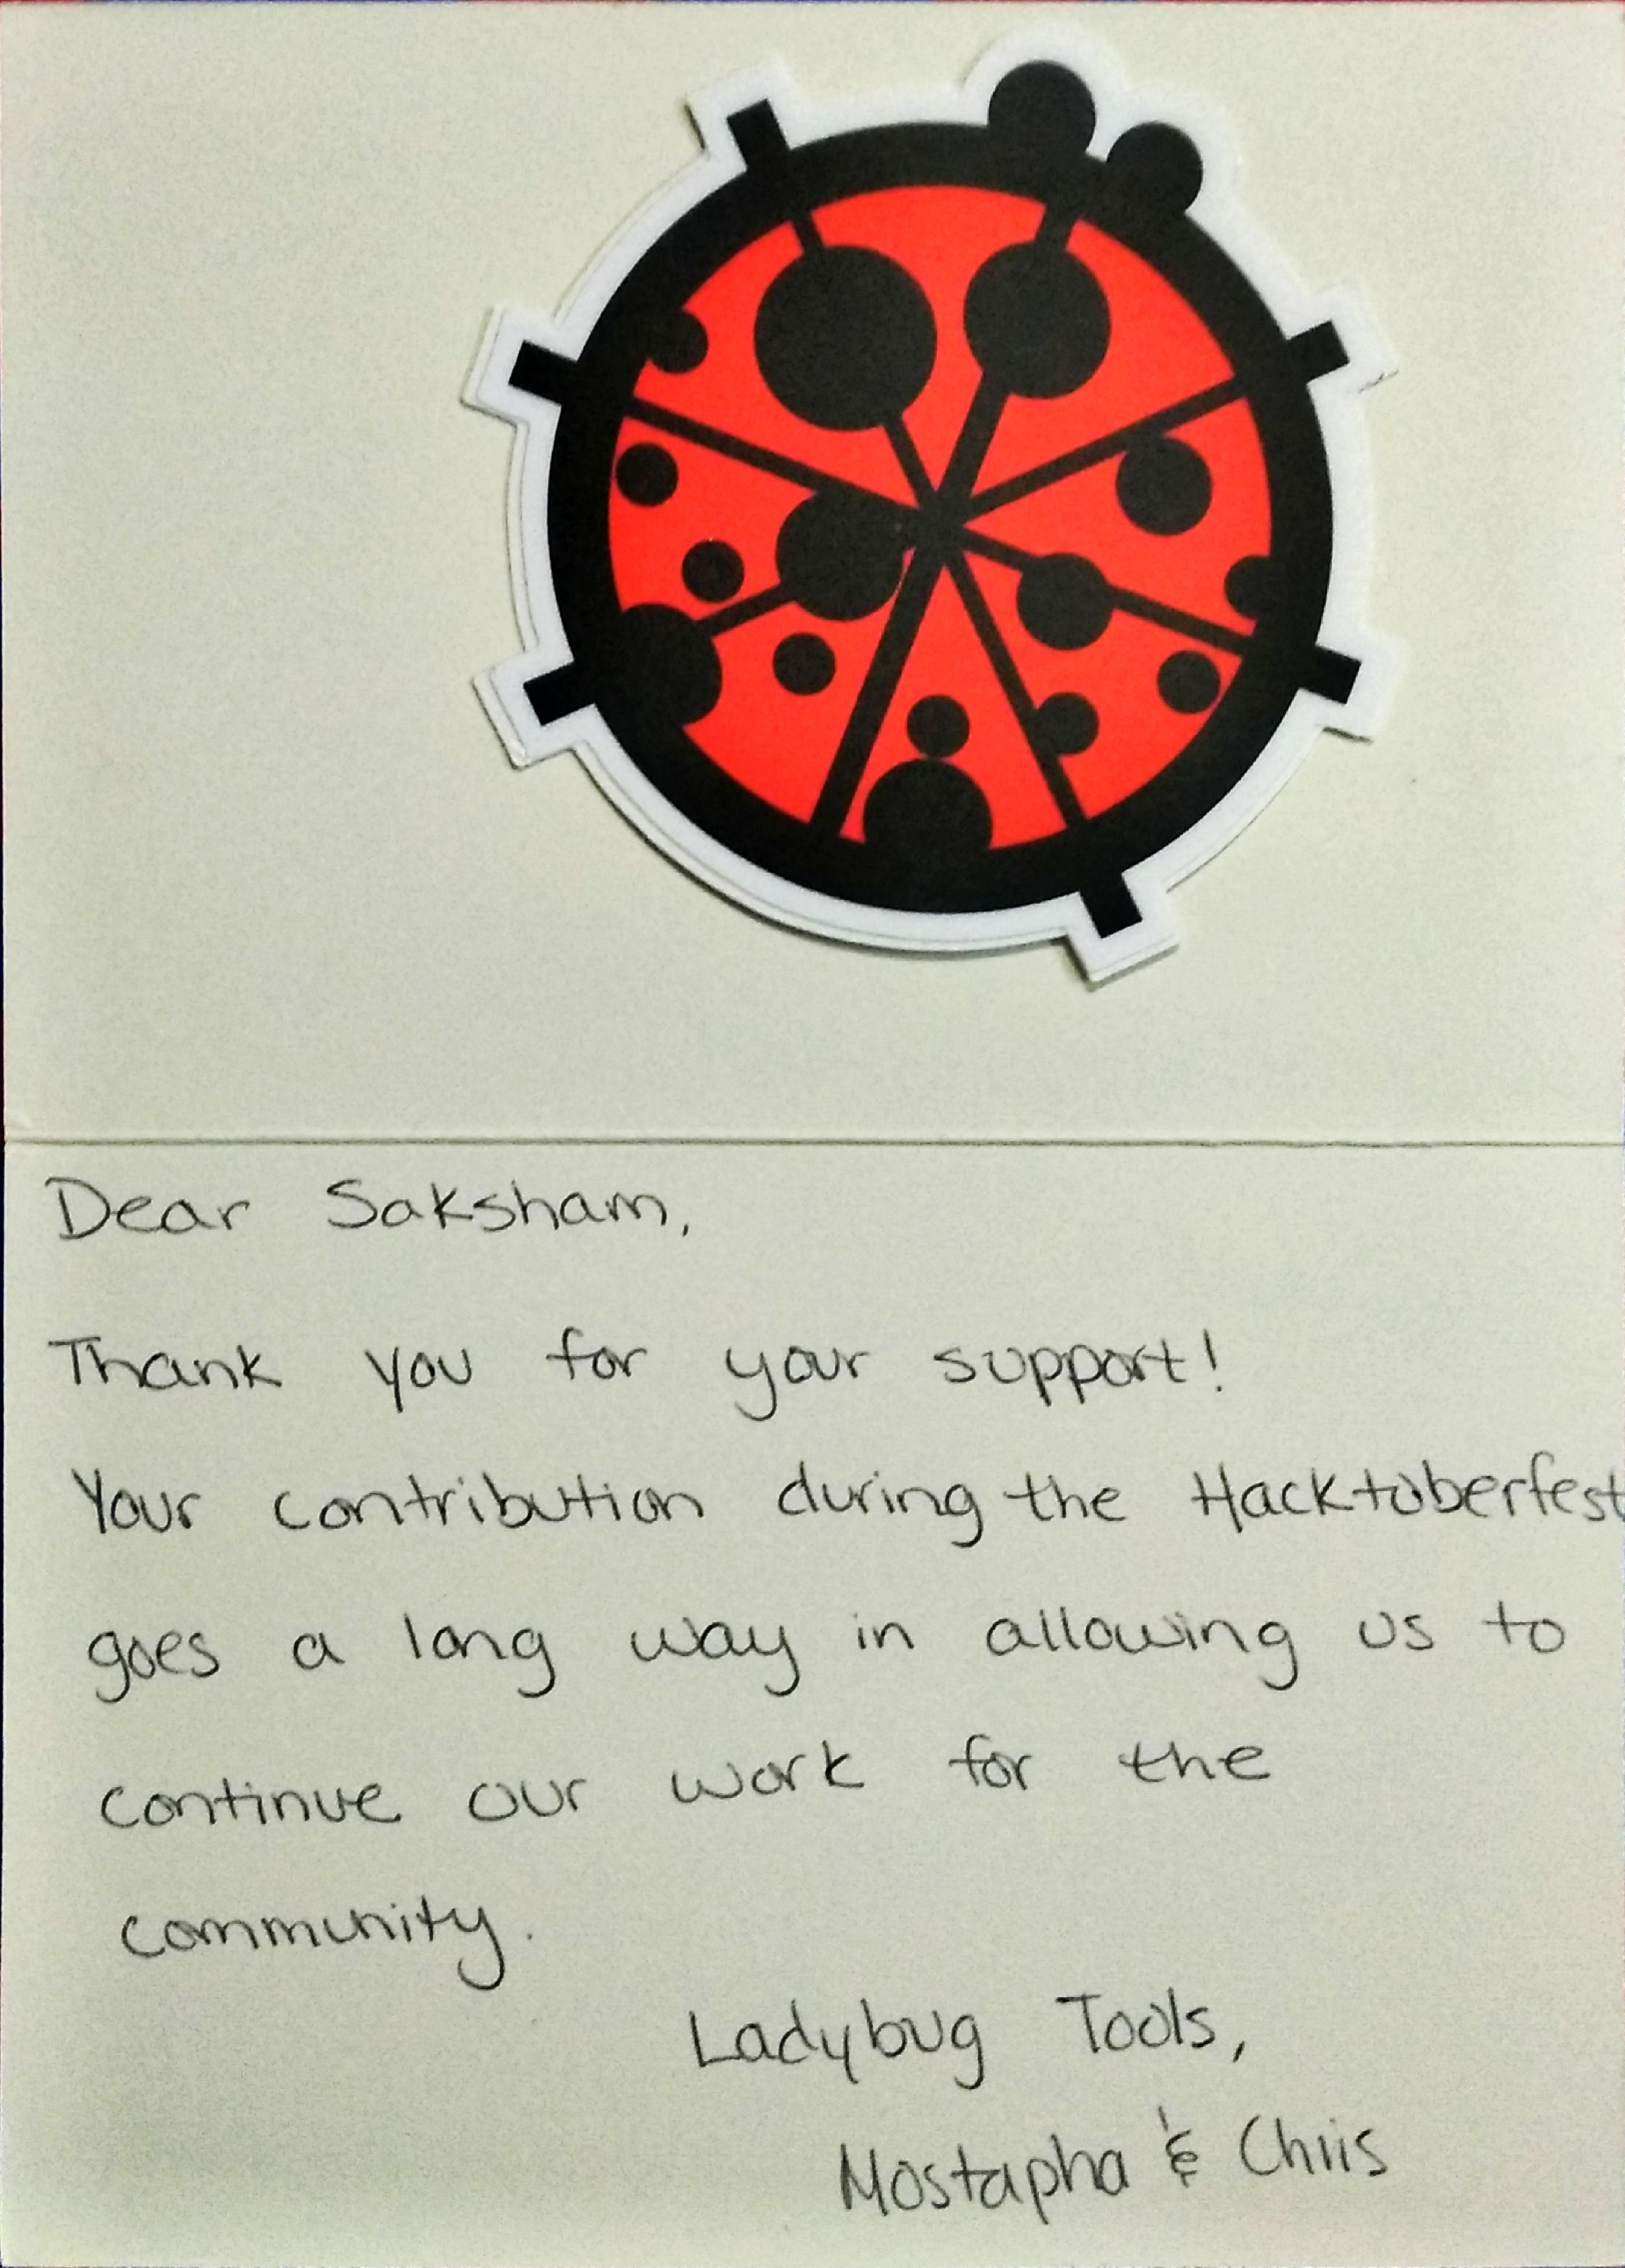 Dear Saksham,
Thank you for your support!
Your contribution during the Hacktoberfest
goes a long way in allowing us to
continue our work for the
community.
Ladybug Tools,
Mostapha & Chris